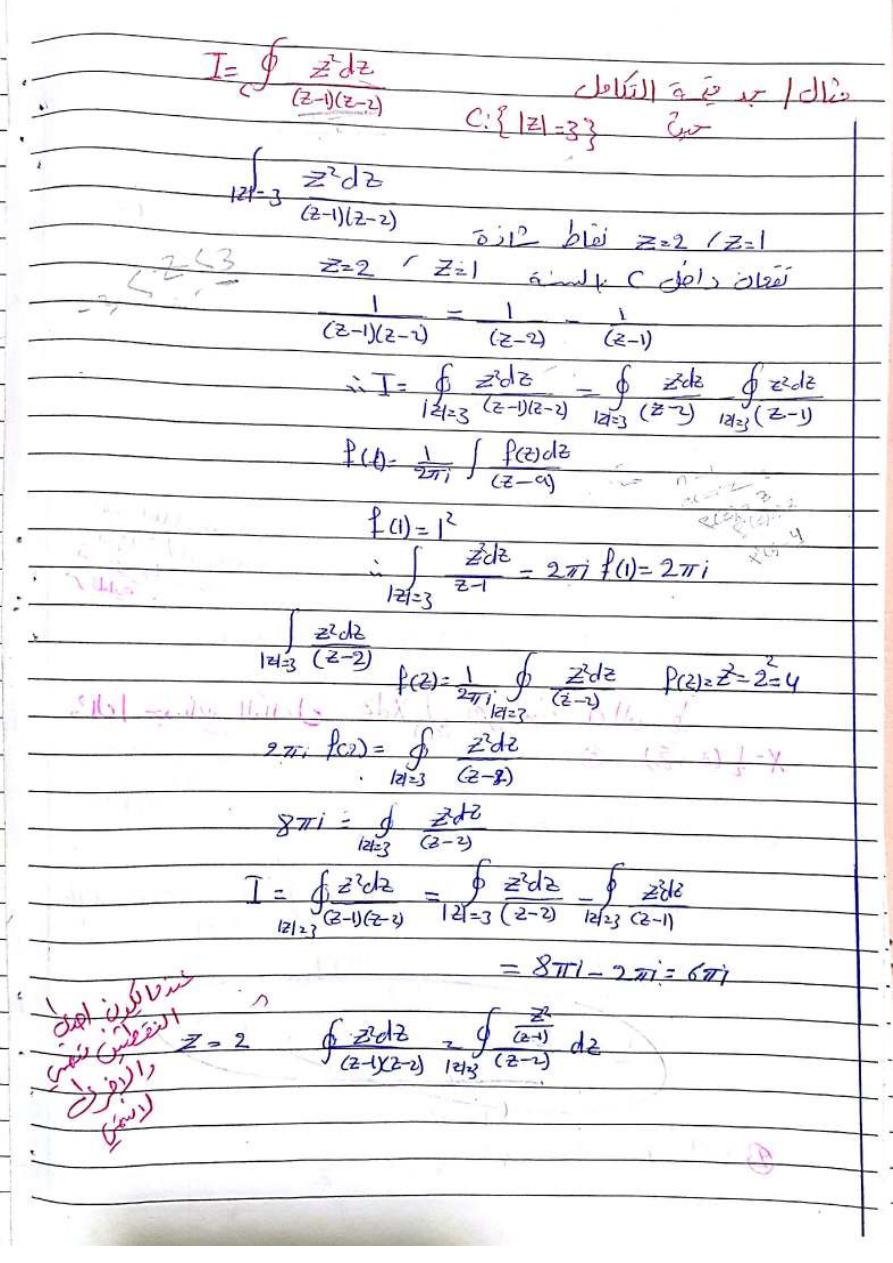 مثال / جد قيمة التكامل I= ∮_C z²dz / (z-1)(z-2)
حيث C:{|z|=3}
∫_{|z|=3} z²dz / (z-1)(z-2)
z=1 / z=2 نقاط شاذة
تقعان داخل C بالنسبة z=1 ، z=2
1/((z-1)(z-2)) = 1/(z-2) - 1/(z-1)
∴ I= ∮_{|z|=3} z²dz/((z-1)(z-2)) = ∮_{|z|=3} z²dz/(z-2) - ∮_{|z|=3} z²dz/(z-1)
f(1)= 1/2πi ∫ f(z)dz/(z-a)
f(1)=1²
∴ ∫_{|z|=3} z²dz/z-1 = 2πi f(1)= 2πi
∫_{|z|=3} z²dz/(z-2)
f(2)= 1/2πi ∮_{|z|=3} z²dz/(z-2) f(2)=z²=2²=4
2πi f(2)= ∮_{|z|=3} z²dz/(z-2)
8πi = ∮_{|z|=3} z²dz/(z-2)
I = ∮_{|z|=3} z²dz/((z-1)(z-2)) = ∮_{|z|=3} z²dz/(z-2) - ∮_{|z|=3} z²dz/(z-1)
= 8πi - 2πi = 6πi
عندما يكون احدى
النقطتين تنتمي
والاخرى
لا تنتمي
z=2 ∮ z²dz/((z-1)(z-2)) = ∮_{|z|=3} (z²/(z-1))/(z-2) dz